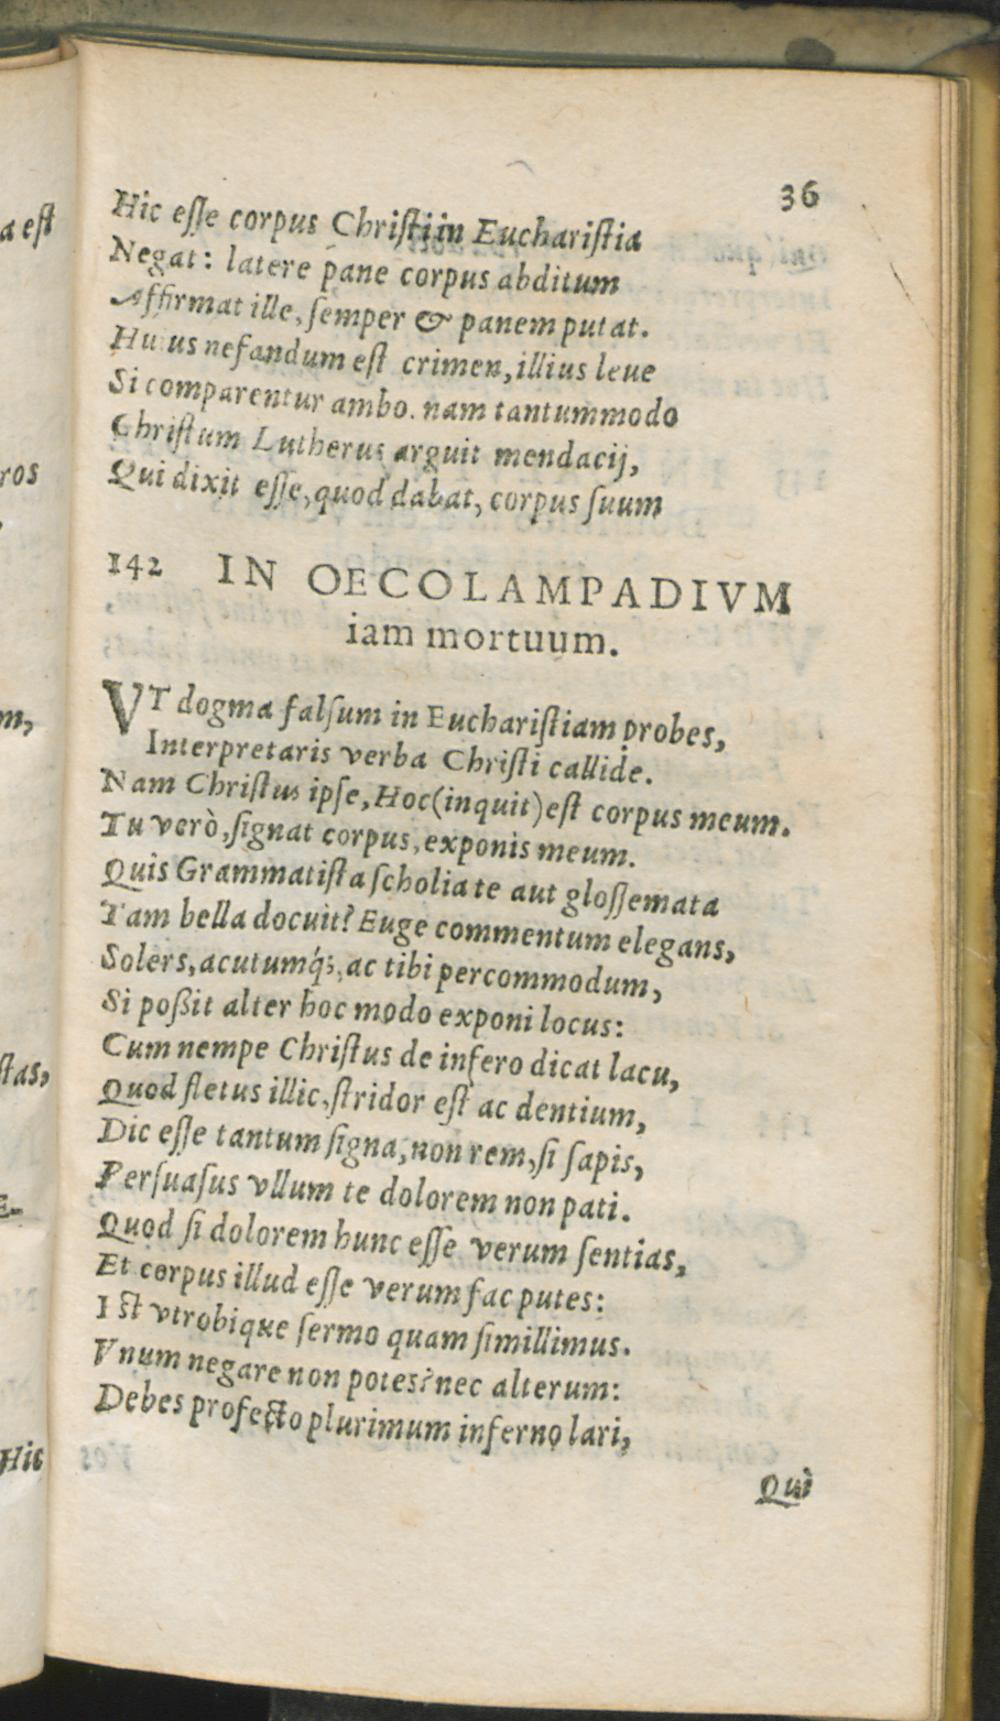 36
Hic eſſe corpus Chriſti in Euchariſtia
Negat: latere pane corpus abditum
Affirmat ille, ſemper & panem putat.
Huius nefandum eſt crimen, illius leue
Si comparentur ambo. nam tantummodo
Chriſtum Lutherus arguit mendacij,
Qui dixit eſſe, quod dabat, corpus ſuum
142 IN OECOLAMPADIVM
iam mortuum.
VT dogma falſum in Euchariſtiam probes,
Interpretaris verba Chriſti callide.
Nam Chriſtus ipſe, Hoc (inquit) eſt corpus meum.
Tu verò, ſignat corpus, exponis meum.
Quis Grammatiſta ſcholia te aut gloſſemata
Tam bella docuit? Euge commentum elegans,
Solers, acutumq́;, ac tibi percommodum,
Si poßit alter hoc modo exponi locus:
Cum nempe Chriſtus de infero dicat lacu,
Quod fletus illic, ſtridor eſt ac dentium,
Dic eſſe tantum ſigna, non rem, ſi ſapis,
Perſuaſus vllum te dolorem non pati.
Quod ſi dolorem hunc eſſe verum ſentias,
Et corpus illud eſſe verum fac putes:
Eſt vtrobique ſermo quam ſimillimus.
Vnum negare non potes? nec alterum:
Debes profecto plurimum inferno lari,
Qui
a eſt
ros
,
m,
ſtas,
E.
Hic